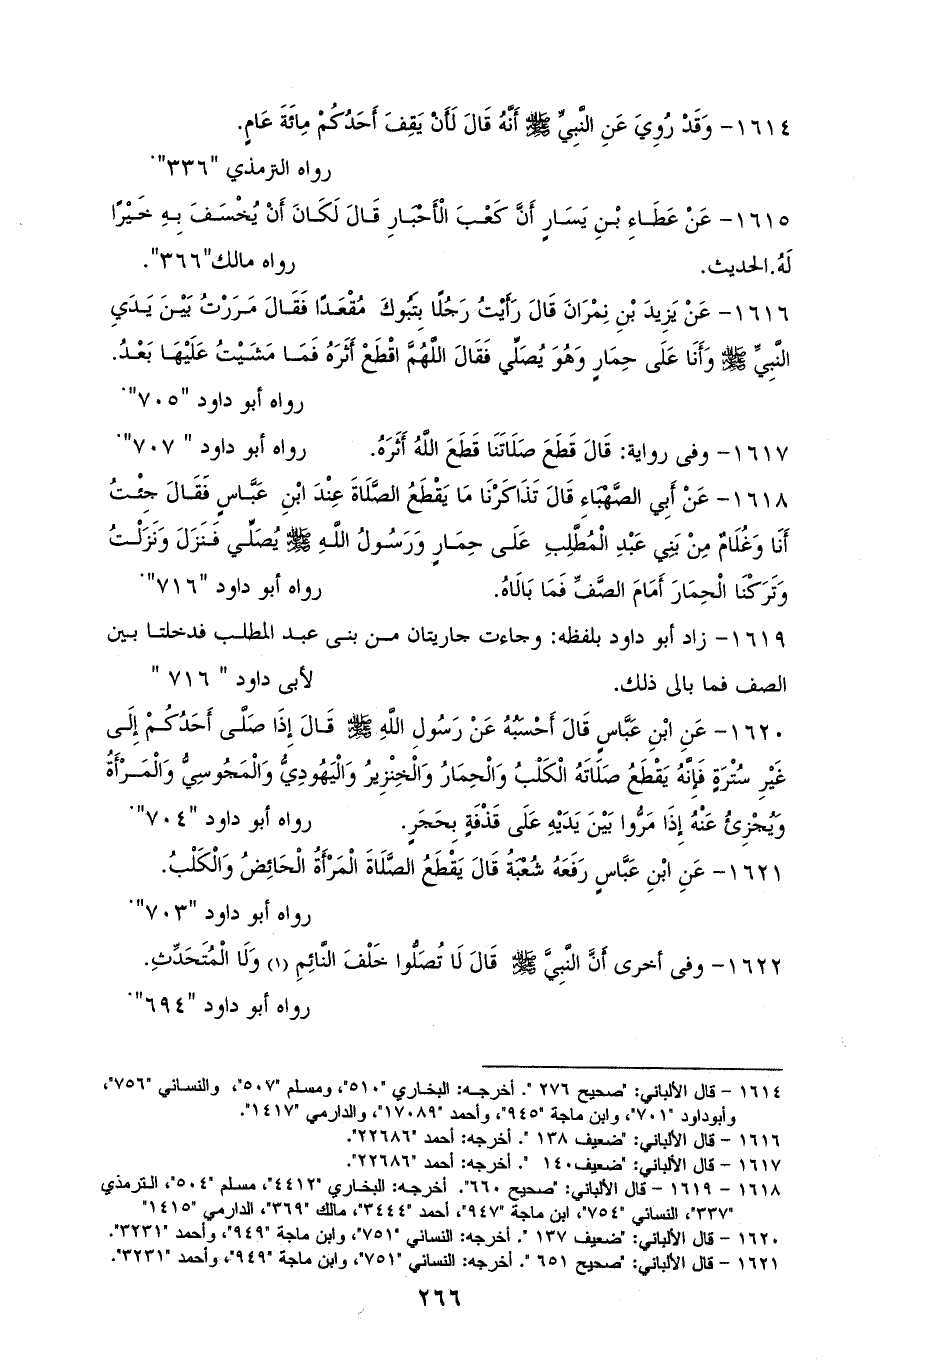 ١٦١٤- وَقَدْ رُوِيَ عَنِ النَّبِيِّ ﷺ أَنَّهُ قَالَ لَأَنْ يَقِفَ أَحَدُكُمْ مِائَةَ عَامٍ.
رواه الترمذي "٣٣٦".
١٦١٥- عَنْ عَطَاءِ بْنِ يَسَارٍ أَنَّ كَعْبَ الْأَحْبَارِ قَالَ لَكَانَ أَنْ يُخْسَفَ بِهِ خَيْرًا
لَهُ.الحديث. رواه مالك"٣٦٦".
١٦١٦- عَنْ يَزِيدَ بْنِ نِمْرَانَ قَالَ رَأَيْتُ رَجُلًا بِتَبُوكَ مُقْعَدًا فَقَالَ مَرَرْتُ بَيْنَ يَدَيِ
النَّبِيِّ ﷺ وَأَنَا عَلَى حِمَارٍ وَهُوَ يُصَلِّي فَقَالَ اللَّهُمَّ اقْطَعْ أَثَرَهُ فَمَا مَشَيْتُ عَلَيْهَا بَعْدُ.
رواه أبو داود "٧٠٥".
١٦١٧- وفى رواية: قَالَ قَطَعَ صَلَاتَنَا قَطَعَ اللَّهُ أَثَرَهُ. رواه أبو داود " ٧٠٧".
١٦١٨- عَنْ أَبِي الصَّهْبَاءِ قَالَ تَذَاكَرْنَا مَا يَقْطَعُ الصَّلَاةَ عِنْدَ ابْنِ عَبَّاسٍ فَقَالَ جِئْتُ
أَنَا وَغُلَامٌ مِنْ بَنِي عَبْدِ الْمُطَّلِبِ عَلَى حِمَارٍ وَرَسُولُ اللَّهِ ﷺ يُصَلِّي فَنَزَلَ وَنَزَلْتُ
وَتَرَكْنَا الْحِمَارَ أَمَامَ الصَّفِّ فَمَا بَالَاهُ. رواه أبو داود "٧١٦".
١٦١٩- زاد أبو داود بلفظه: وجاءت جاريتان من بنى عبد المطلب فدخلتا بين
الصف فما بالى ذلك. لأبى داود " ٧١٦ "
١٦٢٠- عَنِ ابْنِ عَبَّاسٍ قَالَ أَحْسَبُهُ عَنْ رَسُولِ اللَّهِ ﷺ قَالَ إِذَا صَلَّى أَحَدُكُمْ إِلَى
غَيْرِ سُتْرَةٍ فَإِنَّهُ يَقْطَعُ صَلَاتَهُ الْكَلْبُ وَالْحِمَارُ وَالْخِنْزِيرُ وَالْيَهُودِيُّ وَالْمَجُوسِيُّ وَالْمَرْأَةُ
وَيُجْزِئُ عَنْهُ إِذَا مَرُّوا بَيْنَ يَدَيْهِ عَلَى قَذْفَةٍ بِحَجَرٍ. رواه أبو داود "٧٠٤".
١٦٢١- عَنِ ابْنِ عَبَّاسٍ رَفَعَهُ شُعْبَةُ قَالَ يَقْطَعُ الصَّلَاةَ الْمَرْأَةُ الْحَائِضُ وَالْكَلْبُ.
رواه أبو داود "٧٠٣".
١٦٢٢- وفى أخرى أَنَّ النَّبِيَّ ﷺ قَالَ لَا تُصَلُّوا خَلْفَ النَّائِمِ (١) وَلَا الْمُتَحَدِّثِ.
رواه أبو داود "٦٩٤".
١٦١٤ - قال الألباني: "صحيح ٢٧٦ ". أخرجه: البخاري "٥١٠"، ومسلم "٥٠٧"، والنسائي "٧٥٦"،
وأبوداود "٧٠١"، وابن ماجة "٩٤٥"، وأحمد "١٧٠٨٩"، والدارمي "١٤١٧".
١٦١٦ - قال الألباني: "ضعيف ١٣٨ ". أخرجه: أحمد "٢٢٦٨٦".
١٦١٧ - قال الألباني: "ضعيف١٤٠ ". أخرجه: أحمد "٢٢٦٨٦".
١٦١٨ - ١٦١٩ - قال الألباني: "صحيح ٦٦٠". أخرجه: البخاري "٤٤١٢"، مسلم "٥٠٤"، الترمذي
"٣٣٧"، النسائي "٧٥٤"، ابن ماجة "٩٤٧"، أحمد "٣٤٤٤"، مالك "٣٦٩"، الدارمي "١٤١٥"
١٦٢٠ - قال الألباني: "ضعيف ١٣٧ ". أخرجه: النسائي "٧٥١"، وابن ماجة "٩٤٩"، وأحمد "٣٢٣١".
١٦٢١ - قال الألباني: "صحيح ٦٥١ ". أخرجه: النسائي "٧٥١"، وابن ماجة "٩٤٩"، وأحمد "٣٢٣١".
٢٦٦